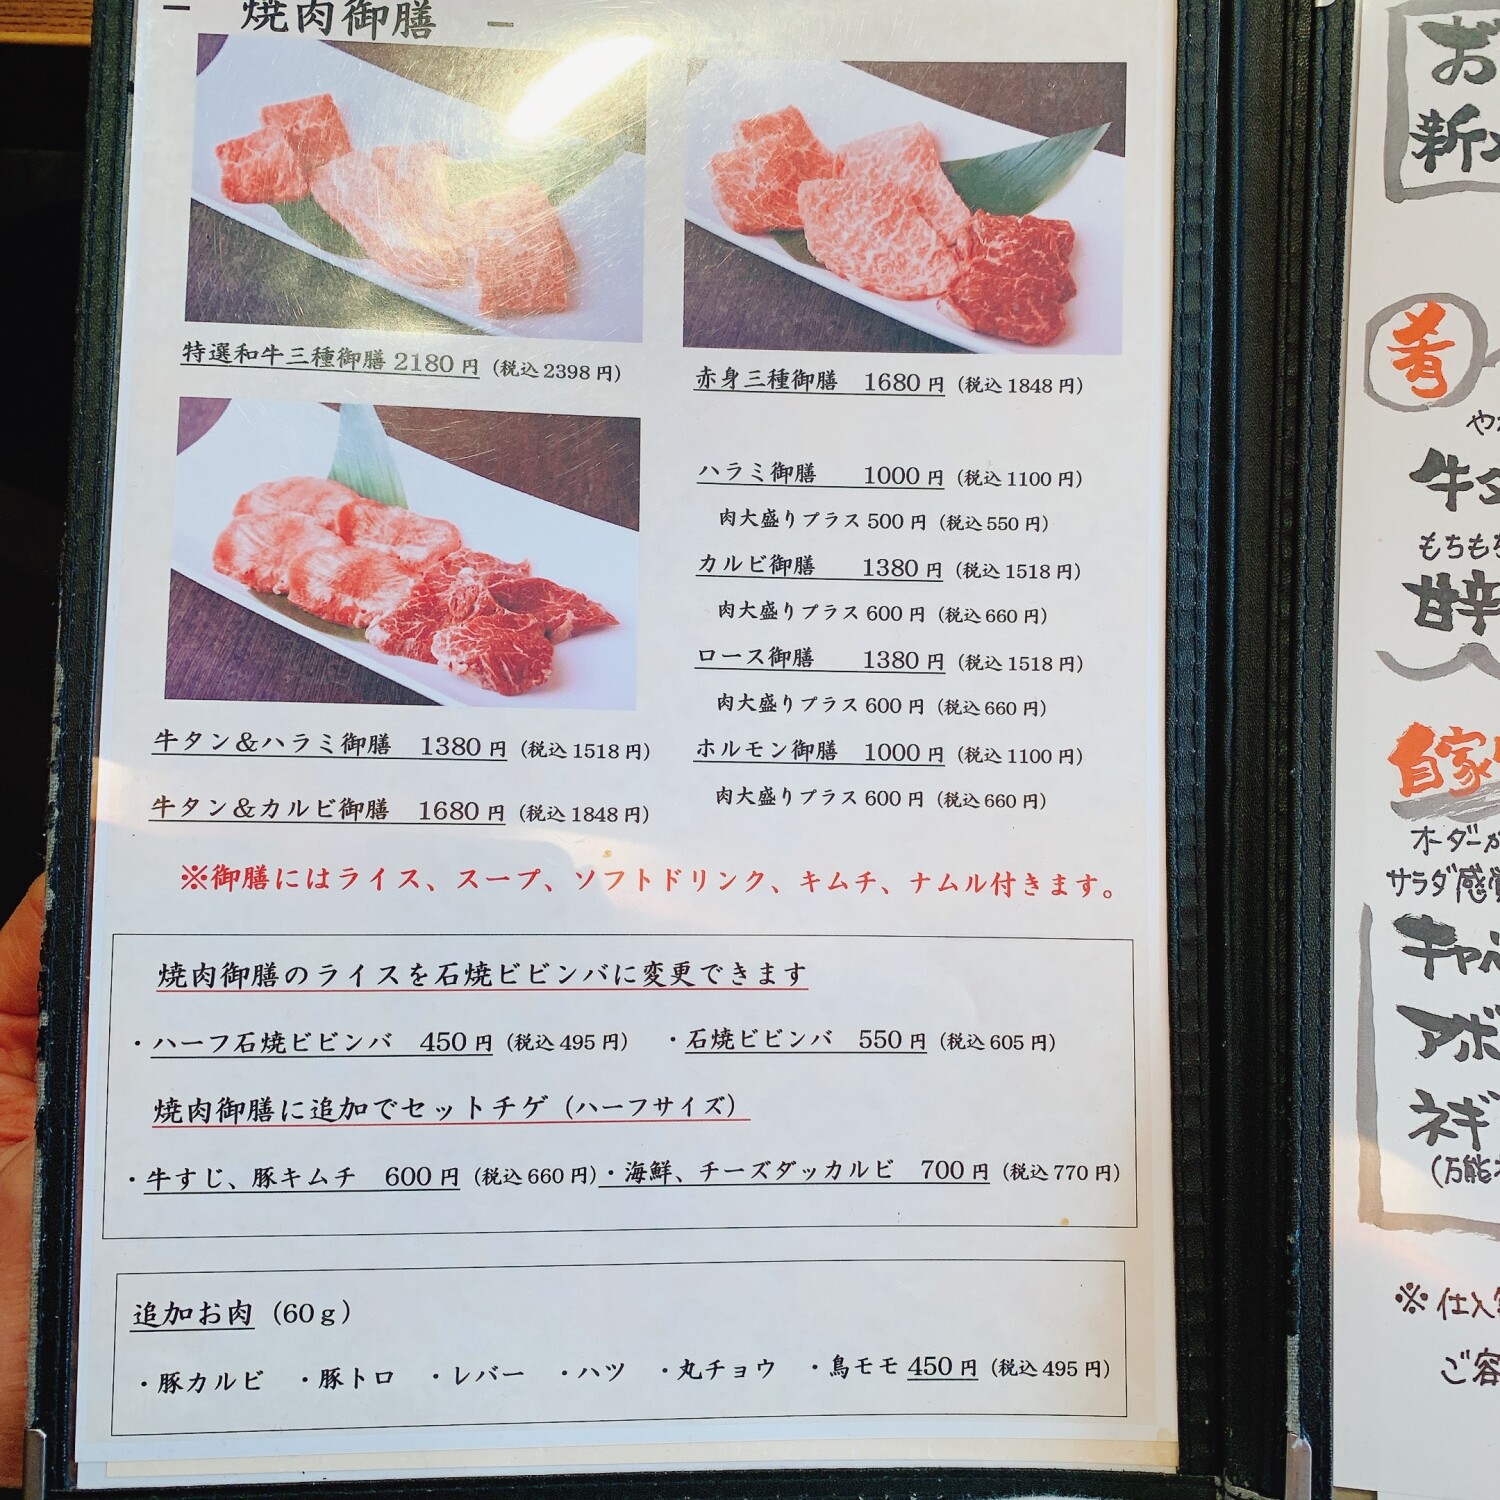 焼肉御膳
特選和牛三種御膳 2180 円 (税込 2398 円)
赤身三種御膳 1680 円 (税込 1848 円)
ハラミ御膳 1000 円 (税込 1100 円)
肉大盛りプラス 500 円 (税込 550 円)
カルビ御膳 1380 円 (税込 1518 円)
肉大盛りプラス 600 円 (税込 660 円)
ロース御膳 1380 円 (税込 1518 円)
肉大盛りプラス 600 円 (税込 660 円)
ホルモン御膳 1000 円 (税込 1100 円)
肉大盛りプラス 600 円 (税込 660 円)
牛タン＆ハラミ御膳 1380 円 (税込 1518 円)
牛タン＆カルビ御膳 1680 円 (税込 1848 円)
※御膳にはライス、スープ、ソフトドリンク、キムチ、ナムル付きます。
焼肉御膳のライスを石焼ビビンバに変更できます
・ハーフ石焼ビビンバ 450 円 (税込 495 円) ・石焼ビビンバ 550 円 (税込 605 円)
焼肉御膳に追加でセットチゲ (ハーフサイズ)
・牛すじ、豚キムチ 600 円 (税込 660 円)・海鮮、チーズダッカルビ 700 円 (税込 770 円)
追加お肉 (60ｇ)
・豚カルビ ・豚トロ ・レバー ・ハツ ・丸チョウ ・鳥モモ 450 円 (税込 495 円)
お
新
肴
や
牛タ
もちも
甘辛
自家
オーダーが
サラダ感覚
キャベ
アボ
ネギ
(万能
※仕入
ご容